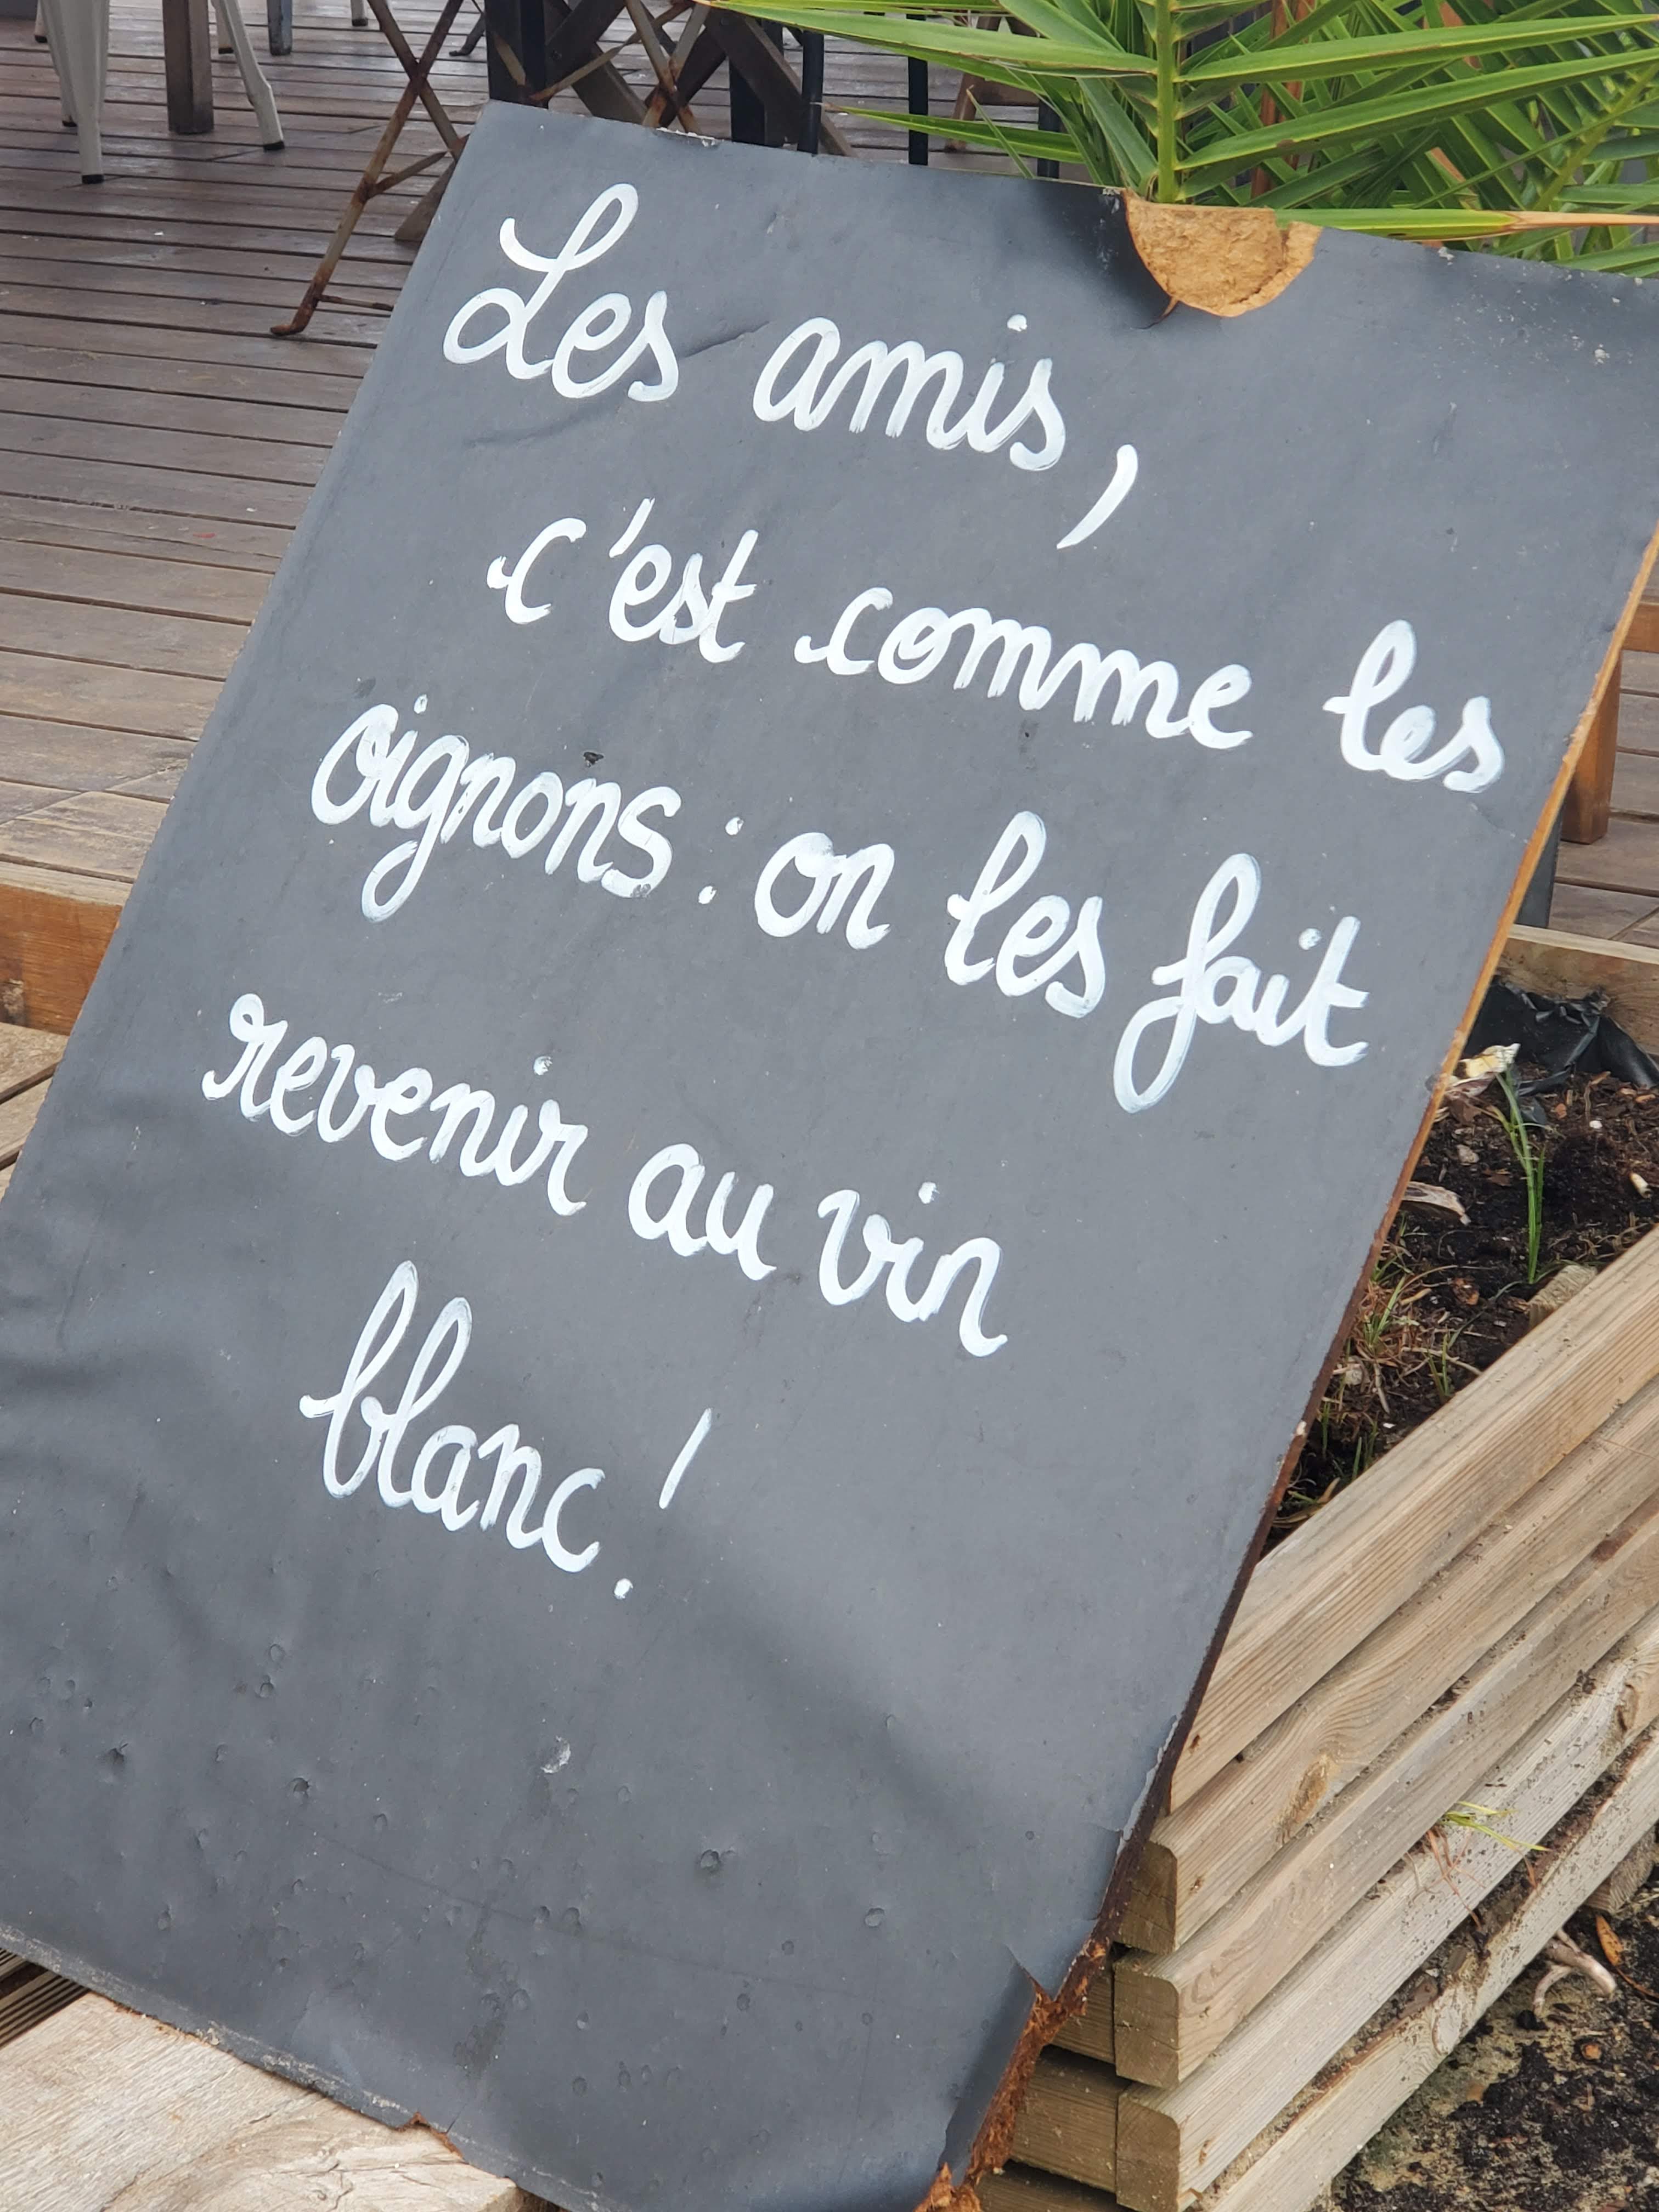 Les amis,
c'est comme les
oignons : on les fait
revenir au vin
blanc !